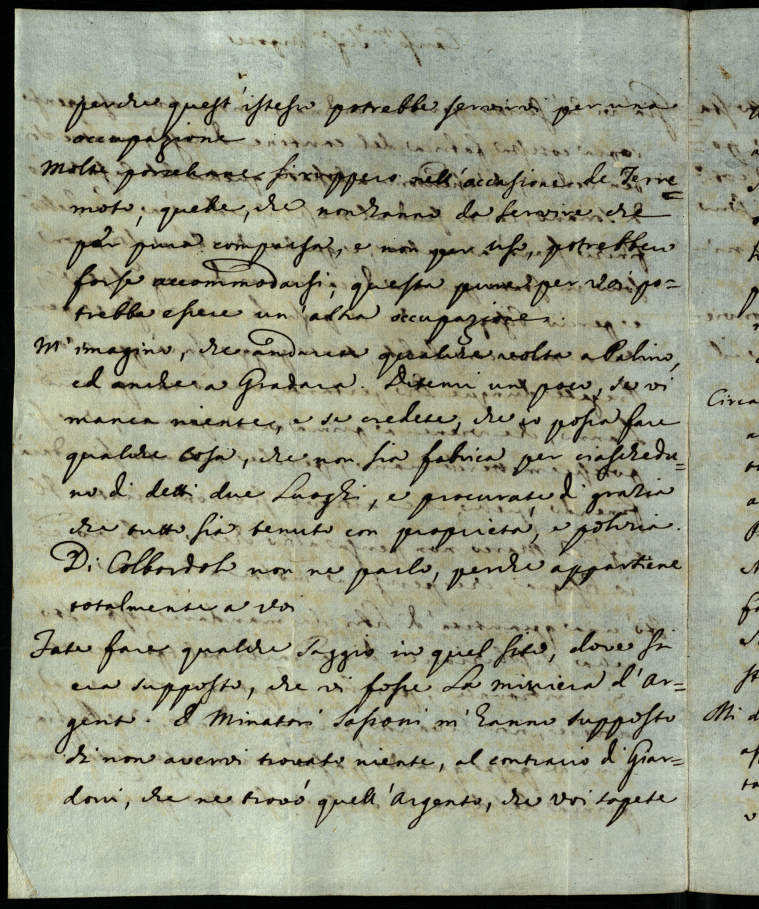 perche quest'istesso potrebbe servirvi per una
occupazione
Molte porcelane si ruppero nell'occasione de Terre=
moto; quelle, che non hanno da servire che
per pura comparsa, e non per uso, potrebbero
forse accommodarsi; questa pure per voi po=
trebbe essere un'altra occupazione.
M'imagino, che andarete qualche volta a Palino,
ed anche a Gradara. Ditemi un poco, se vi
manca niente, e se credete, che io possa fare
qualche cosa, che non sia fabrica per ciaschedu=
no di detti due Luoghi, e procurate di grazia
che tutto sia tenuto con proprietà, e polizia.
Di Colbordolo non ne parlo, perche appartiene
totalmente a voi
Fate fare qualche saggio in quel sito, dove si
era supposto, che vi fosse la miniera d'Ar=
gento. I Minatori Sassoni m'hanno supposto
di non avervi trovato niente, al contrario di Giar=
doni, che ne trovò quell'Argento, che voi sapete
Circa
Mi d